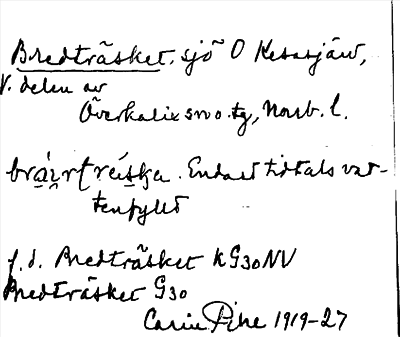 Bredträsket, sjö O Kesasjärv,
V. delen av
Överkalix sn o. tg, Norrb. l.
Endast tidtals vat-
tenfylld
f.d. Bredträsket K G30NV
Bredträsket G30
Carin Pihl 1919-27